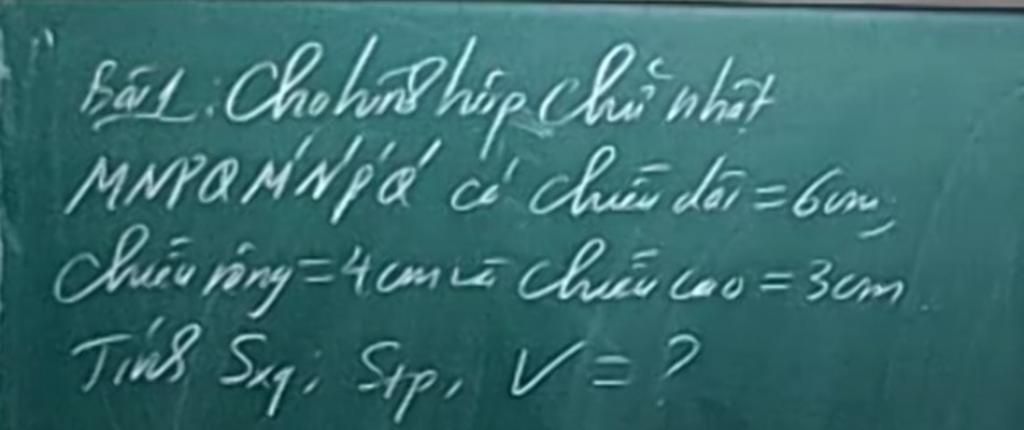 Bài 1: Cho hình hộp chữ nhật
MNPQM'N'P'Q' có chiều dài = 6cm,
chiều rộng = 4cm và chiều cao = 3cm.
Tính Sxq, Stp, V = ?